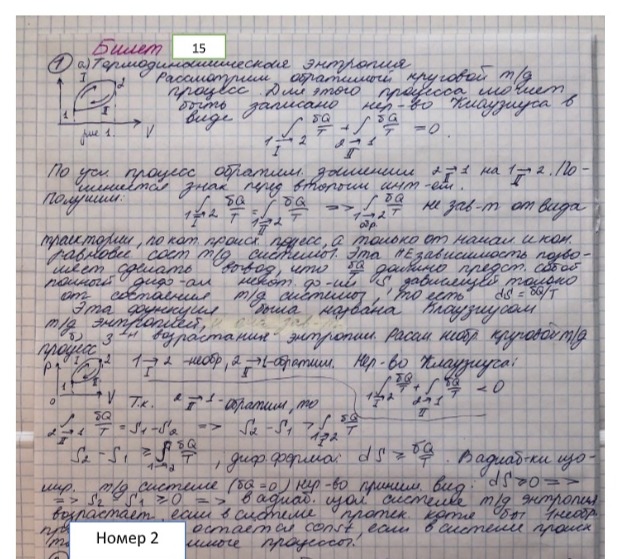 Билет 15
1 а) Термодинамическая энтропия
I 2 Рассмотрим обратимый круговой т/д
процесс. Для этого процесса может
быть записано нер-во Клаузиуса в
1 II виде ∫ 1→2 I δQ/T + ∫ 2→1 II δQ/T = 0.
рис 1. V
По усл. процесс обратим. заменим 2→1 II на 1→2 II. По-
меняется знак перед вторым инт-ом.
Получим: ∫ 1→2 I δQ/T = ∫ 1→2 II δQ/T => ∫ 1→2 обр. δQ/T не зав-т от вида
траектории, по кот. происх. процесс, а только от начал. и кон.
равновес сост т/д системы. Эта независимость позво-
ляет сделать вывод, что δQ/T должно предст. собой
полный диф-ал некот. ф-ии S, зависящей только
от состояния т/д системы, то есть dS = δQ/T
Эта функция была названа Клаузиусом
т/д энтропией,
б) З-н возрастания энтропии. Расм. необр. круговой т/д
процесс
P I 2 1→2 I -необр, 2→1 II -обратим. Нер-во Клаузиуса:
1 II 0 V ∫ 1→2 I δQ/T + ∫ 2→1 II δQ/T < 0
Т.к. 2→1 II - обратим, то
∫ 2→1 II δQ/T = S1-S2 => S2-S1 > ∫ 1→2 δQ/T
S2-S1 ≥ ∫ 1→2 δQ/T, диф. форма: dS ≥ δQ/T. В адиаб-ки изо-
лир. т/д системе (δQ=0) нер-во приним. вид: dS ≥ 0 =>
=> S2-S1 ≥ 0 => в адиаб. изол системе т/д энтропия
возрастает, если в системе протек. хотя бы 1 необр
остается const если в системе проис
Номер 2 процессы.